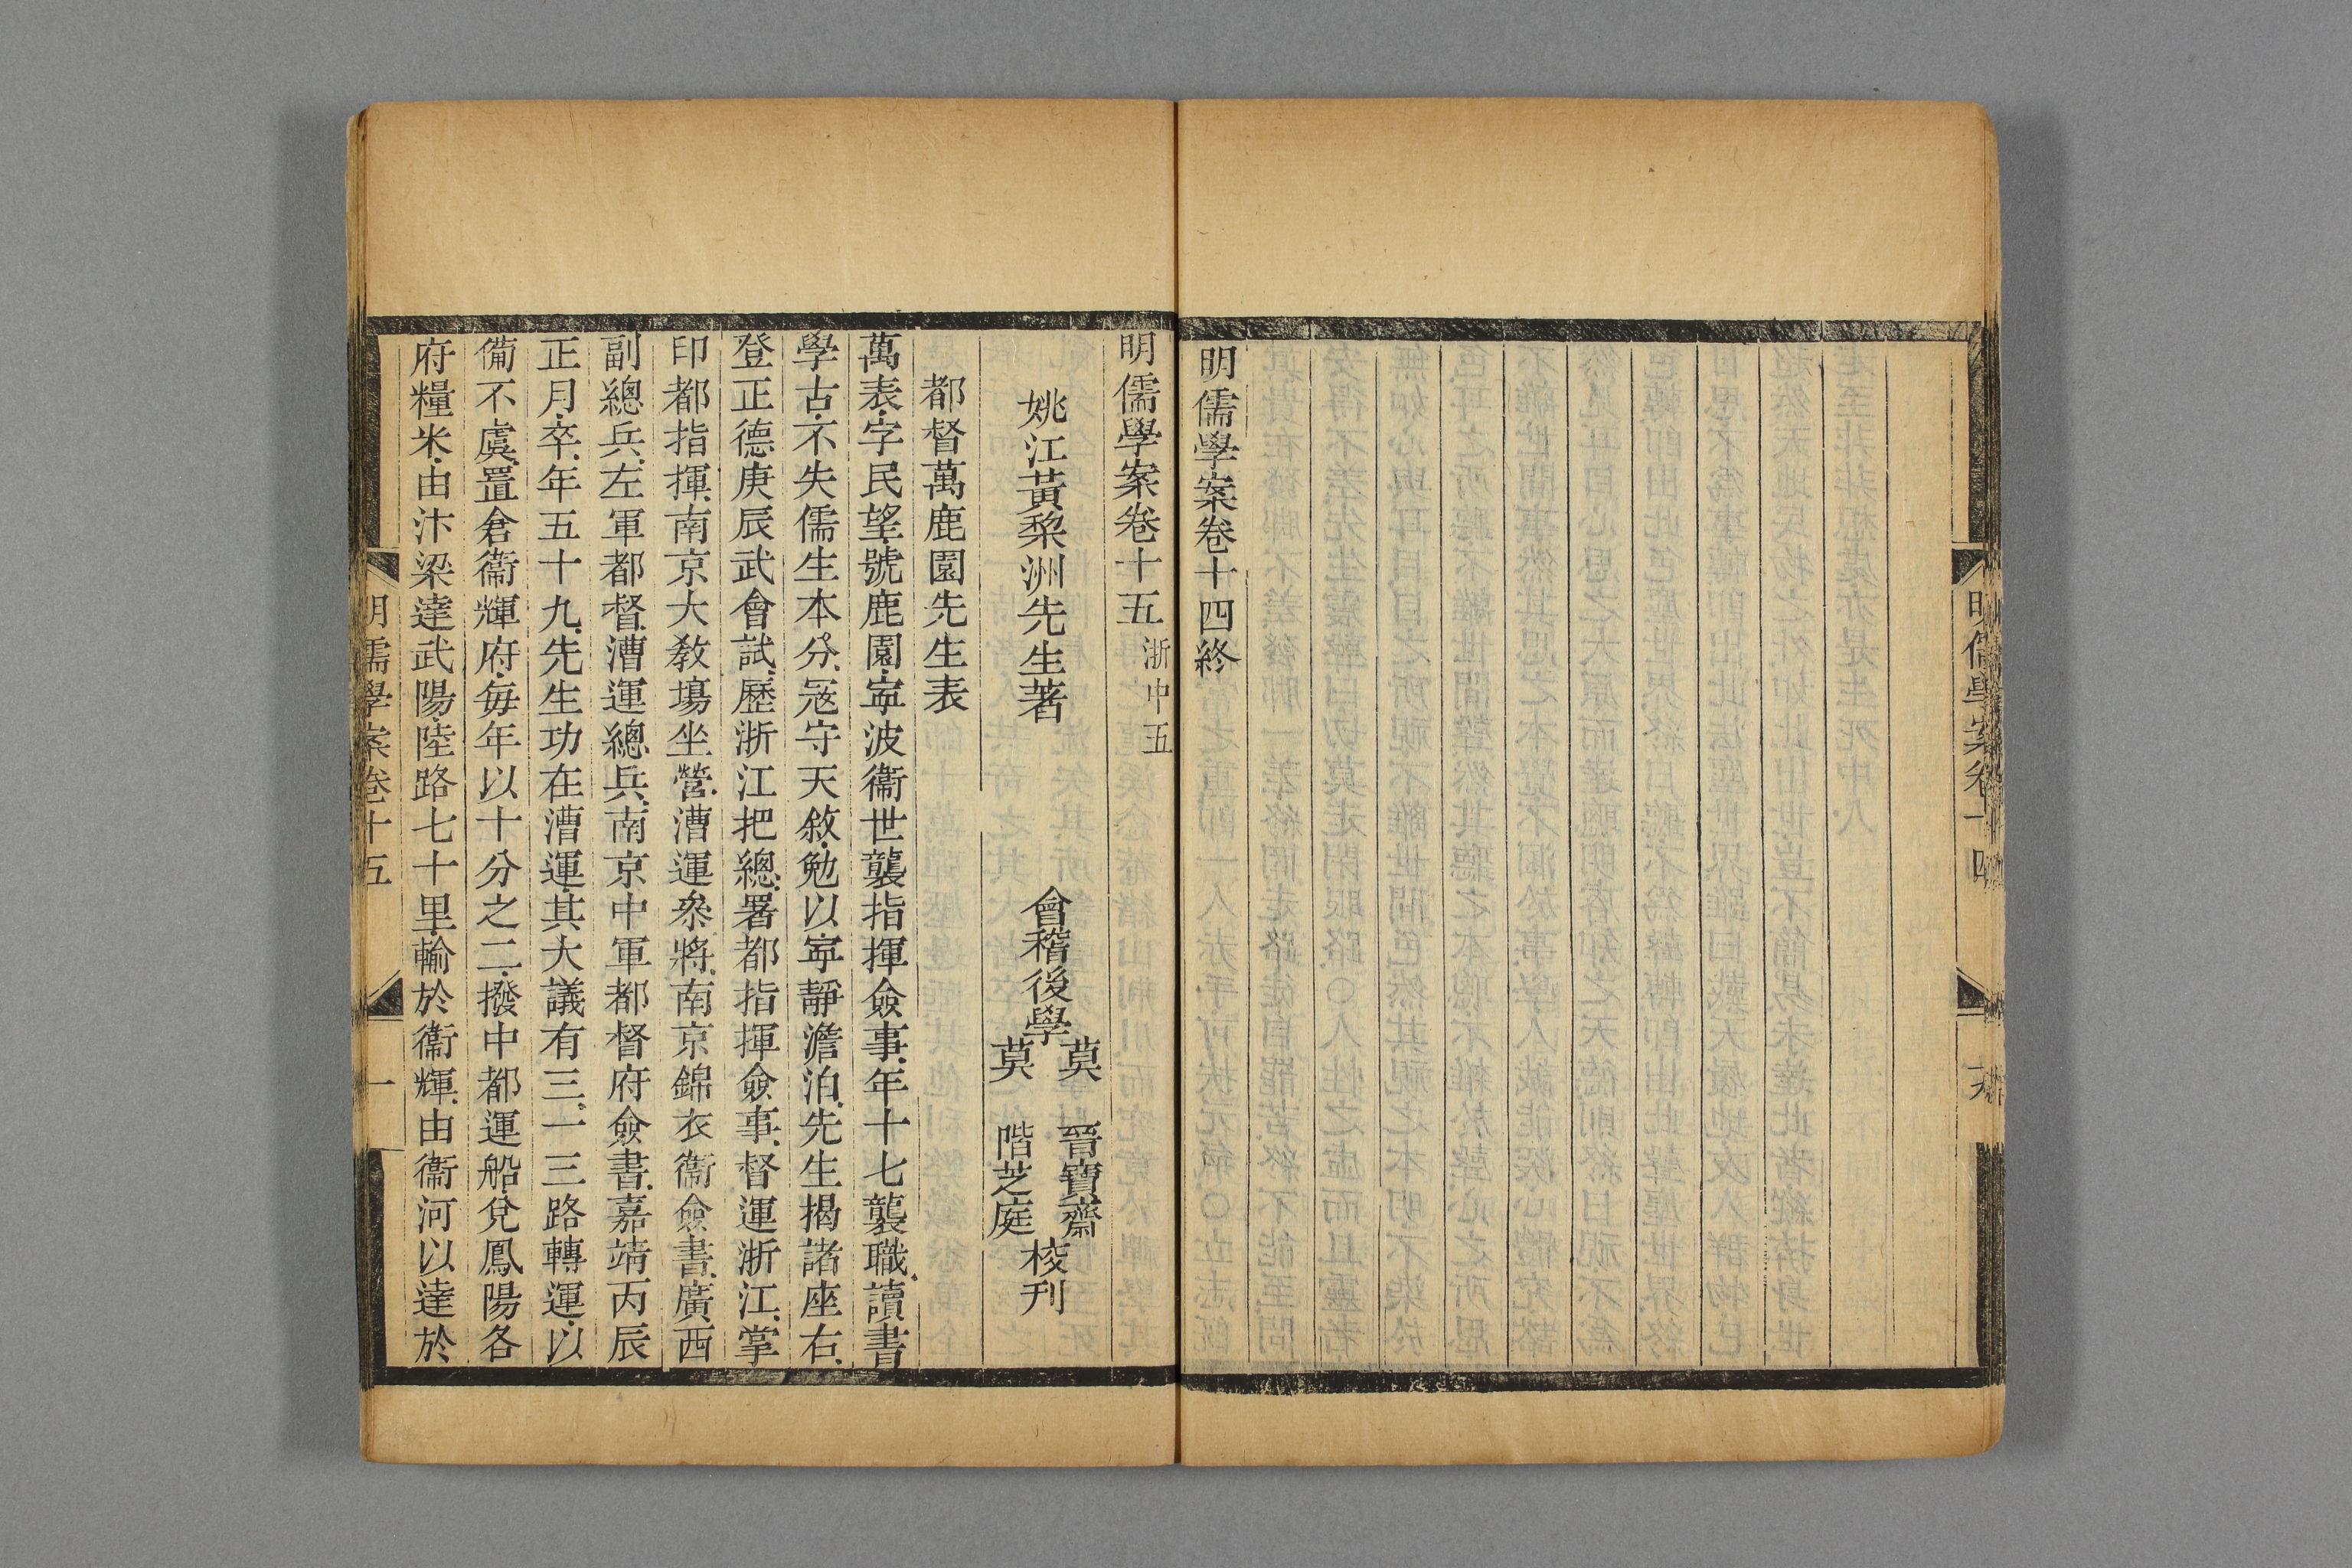 明儒學案卷十四
明儒學案卷十四終
明儒學案卷十五 浙中五
姚江黃棃洲先生著
會稽後學
莫 晉寶齋
莫 階芝庭
梭刊
都督萬鹿園先生表
萬表字民望號鹿園寕波衞世襲指揮僉事年十七襲職讀書
學古不失儒生本分宼守天敘勉以寕靜澹泊先生揭諸座右
登正德庚辰武會試歷浙江把總署都指揮僉事督運浙江掌
印都指揮南京大敎塲坐營漕運叅將南京錦衣衞僉書廣西
副總兵左軍都督漕運總兵南京中軍都督府僉書嘉靖丙辰
正月卒年五十九先生功在漕運其大議有三一三路轉運以
備不虞置倉衞輝府每年以十分之二撥中都運船兌鳳陽各
府糧米由汴梁達武陽陸路七十里輸於衞輝由衞河以達於
明儒學案卷十五
一